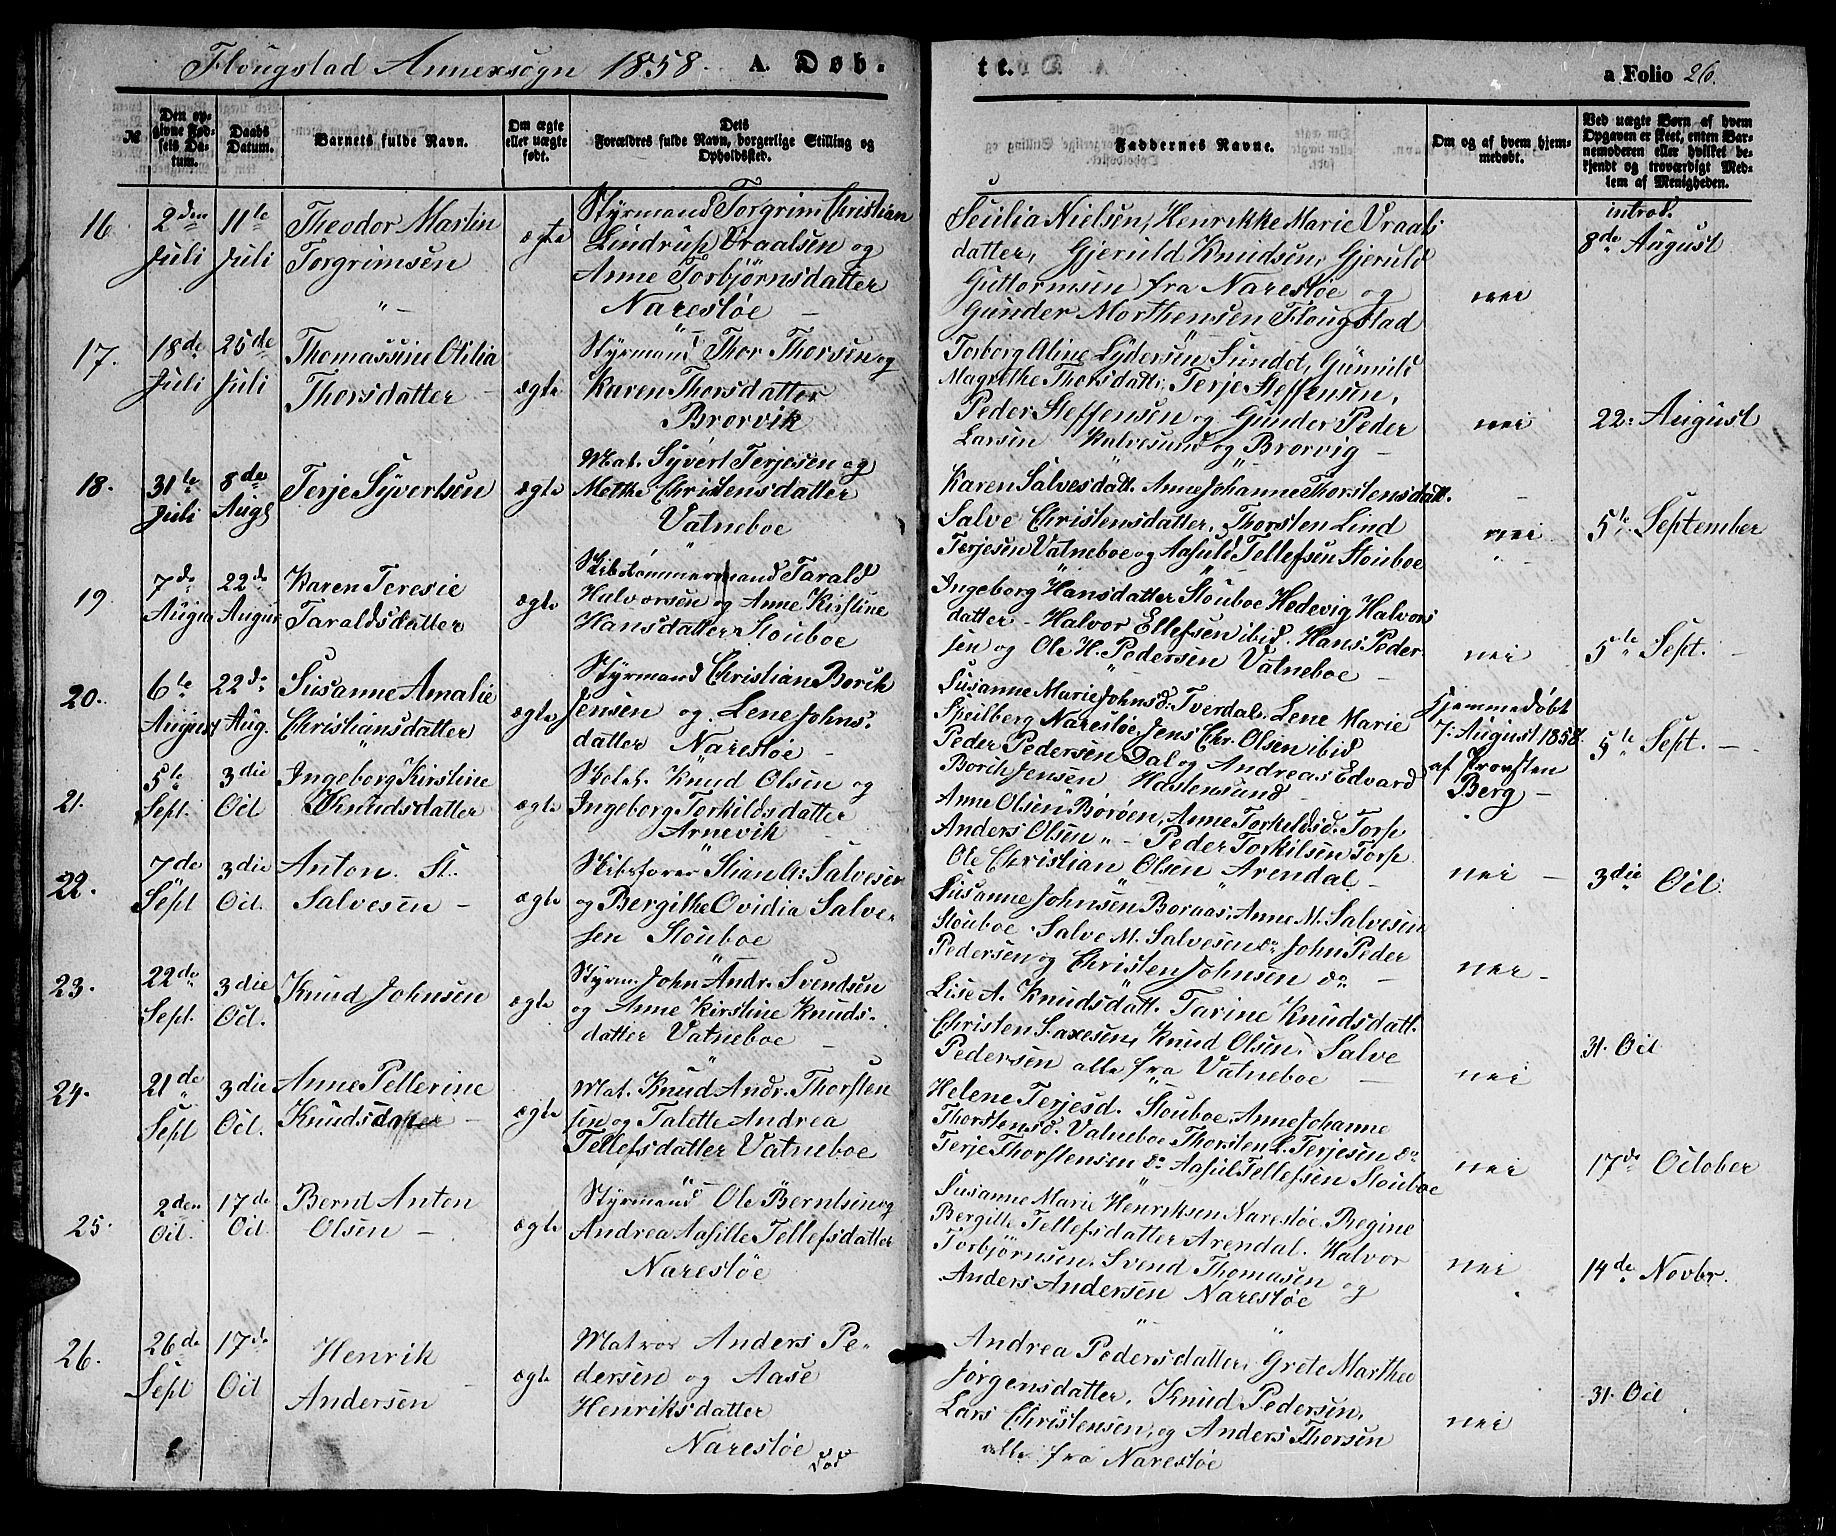 Flougstad Annexsogn 1858. A. Døb-
te.
a Folio 26.
№
Den op-
givne Fød-
sels Da-
tum.
Daabs
Datum.
Barnets fulde Navn.
Om ægte
eller uægte
født.
Dets
Forældres fulde Navn, borgerlige Stilling og
Opholdssted.
Faddernes Navne.
Om og af hvem hjem-
medøbt.
Ved uægte Børn af hvem
Opgaven er skeet, enten Bar-
nemoderen eller hvilket be-
kjendt og troværdigt Med-
lem af Menigheden.
16.
2den
Juli
11te
Juli
Theodor Martin
Torgrimsen
ægte
Styrmand Torgrim Christian
Lindrup Vraalsen og
Anne Torbjørnsdatter
Narestøe
Secilia Nielsen, Henrikke Marie Vraals
datter, Gjeruld Knudsen, Gjeruld
Guttormsen fra Narestøe og
Gunder Morthensen Flougstad
nei
introd.
8de August
17.
18de
Juli
25de
Juli
Thomassine Otilia
Thorsdatter
ægte
Styrmand Thor Thorsen og
Karen Thorsdatter
Brorvik
Torborg Aline Lydersen Sundet, Gunnild
Magrethe Thorsdatt, Terje Steffensen,
Peder Steffensen og Gunder Peder
Larsen Kalvesund og Brorvig
nei
22. August
18.
31te
Juli
8de
Augs
Terje Syvertsen
ægte
Mat. Syvert Terjesen og
Methe Christensdatter
Vatneboe
Karen Salvesdatt. Anne Johanne Thorstensdatt.
Salve Christensdatter, Thorsten Lind
Terjesen Vatneboe og Aasuld Tellefsen Stouboe
nei
5te September
19
7de
August
22de
August
Karen Teresie
Taraldsdatter
ægte
Skibstømmermand Tarald
Halvorsen og Anne Kirstine
Hansdatter Stouboe
Ingeborg Hansdatter Stouboe Hedevig Halvors
datter - Halvor Ellefsen ibid. Hans Peder-
sen og Ole H. Pedersen Vatneboe
nei
5te Sept.
20.
6te
August
22de
Aug.
Susanne Amalie
Christiansdatter
ægte
Styrmand Christian Borik
Jensen og Lene Johns-
datter Narestøe
Susanne Marie Johnsd. Tverdal. Lene Marie
Speilberg Narestøe Jens Chr. Olsen ibid
Peder Pedersen Dal og Andreas Edvard
Borik Jensen Hastensund
Hjemmedøbt
7. August 1858
af Provsten
Berg
5te Sept.
21.
5te
Sept.
3die
Oct
Ingeborg Kirstine
Knudsdatter
ægte
Skolel. Knud Olsen og
Ingeborg Torkildsdatter
Arnevik
Anne Olsen Borøen, Anne Torkildsd. Torp
Anders Olsen " - Peder Torkilsen Torp
Ole Christian Olsen Arendal
nei
3die Oct.
22.
7de
Sept
3die
Oct.
Anton. St.
Salvesen
ægte
Skibsfører Stian A: Salvesen
og Bergithe Ovidia Salve-
sen Stouboe
Susanne Johnsen Boraas, Anne M. Salvesen
Stouboe. Salve M. Salvesen do John Peder
Pedersen og Christen Johnsen do
nei
23.
22de
Sept.
3die
Oct.
Knud Johnsen
ægte
Styrm. John Andr. Svendsen
og Anne Kirstine Knuds-
datter Vatneboe
Lise A. Knudsdatt. Tarine Knudsdatt.
Christen Saxesen, Knud Olsen, Salve
Pedersen alle fra Vatneboe
nei
31. Oct
24.
21de
Sept
3die
Oct.
Anne Pellerine
Knudsdatter
ægte
Mat. Knud Andr. Thorsten
sen og Talette Andrea
Tellefsdatter Vatneboe
Helene Terjesd. Stouboe, Anne Johanne
Thorstensd. Vatneboe Thorsten L. Terjesen do
Terje Thorstensen do Aasul Tellefsen Stouboe
nei
17de October
25.
2den
Oct.
17de
Oct
Bernt Anton
Olsen
ægte
Styrmand Ole Berntsen og
Andrea Aasille Tellefsdatter
Narestøe
Susanne Marie Henriksen Narestøe. Regine
Bergitte Tellefsdatter Arendal. Halvor
Torbjørnsen. Svend Thomasen og
Anders Andersen Narestøe
nei
14de Novbr.
26.
26de
Sept
17de
Oct
Henrik
Andersen
ægte
Matros Anders Pe-
dersen og Aase
Henriksdatter
Narestøe
død
Andrea Pedersdatter, Grete Marthee
Jørgensdatter, Knud Pedersen,
Lars Christensen, og Anders Thorsen
alle fra Narestøe
nei
31. Oct